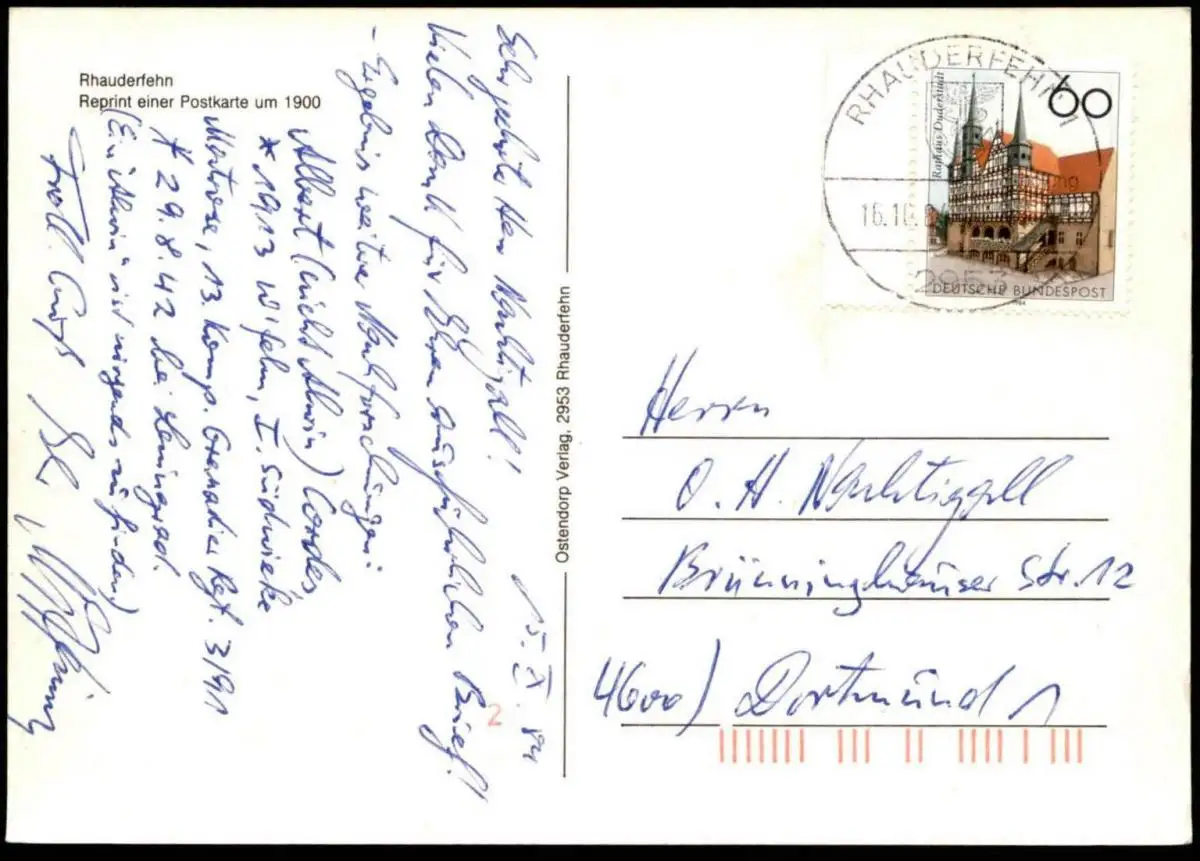 Rhauderfehn
Reprint einer Postkarte um 1900
15. X. 84
Sehr geehrter Herr Nachtigall!
Vielen Dank für Ihren ausführlichen Brief!
- Ergebnis weitere Nachforschungen:
Albert (nicht Alwin) Cordes,
* 1913 W'fehn, I. Südwieke
13. Komp. Grenadier Regt. 3/91
29.8.42 bei Leningrad.
("Ein Alwin" wird nirgends zu finden)
Frdl. Gruß
Ihr
Ostendorp Verlag, 2953 Rhauderfehn
RHAUDERFEHN 1
16.10.8
2953
Rathaus Duderstadt
60
DEUTSCHE BUNDESPOST
1984
Herrn
O. H. Nachtigall
Brünninghauser Str. 12
4600) Dortmund 1
2